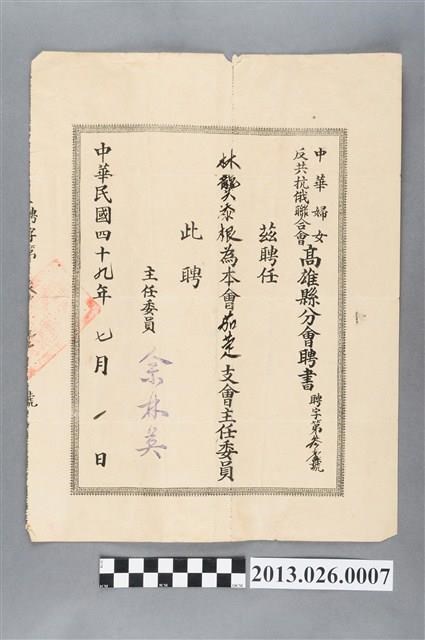 中華婦女
反共抗俄聯合會
高雄縣分會聘書
聘字第叁號
茲聘任
林龔添根為本會茄萣支會主任委員
此聘
主任委員 余林英
中華民國四十九年七月一日
聘字第 號
2013.026.0007